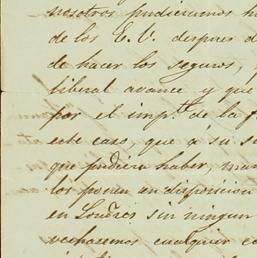 nosotros pudieramos h
de los E. V. despues d
de hacer los seguros,
liberal avance y que
por el impte. de la f
este caso, que a su s
que pudiera haber, man
los ponen en disposicion
en Londres sin ningun
rechazemos cualquier co